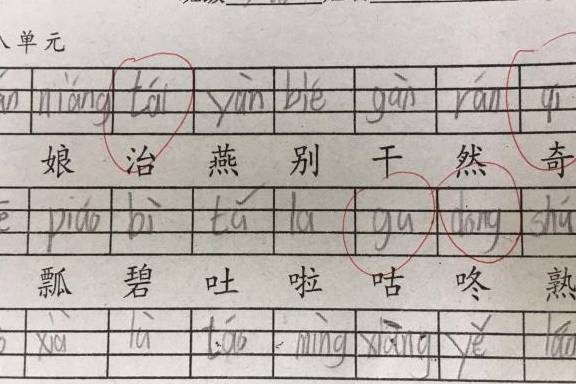 单元
niáng tái yàn bié gàn rán qí
娘 治 燕 别 干 然 奇
piáo bì tǔ la gu dong shú
瓢 碧 吐 啦 咕 咚 熟
xià là táo mìng xiàng yě